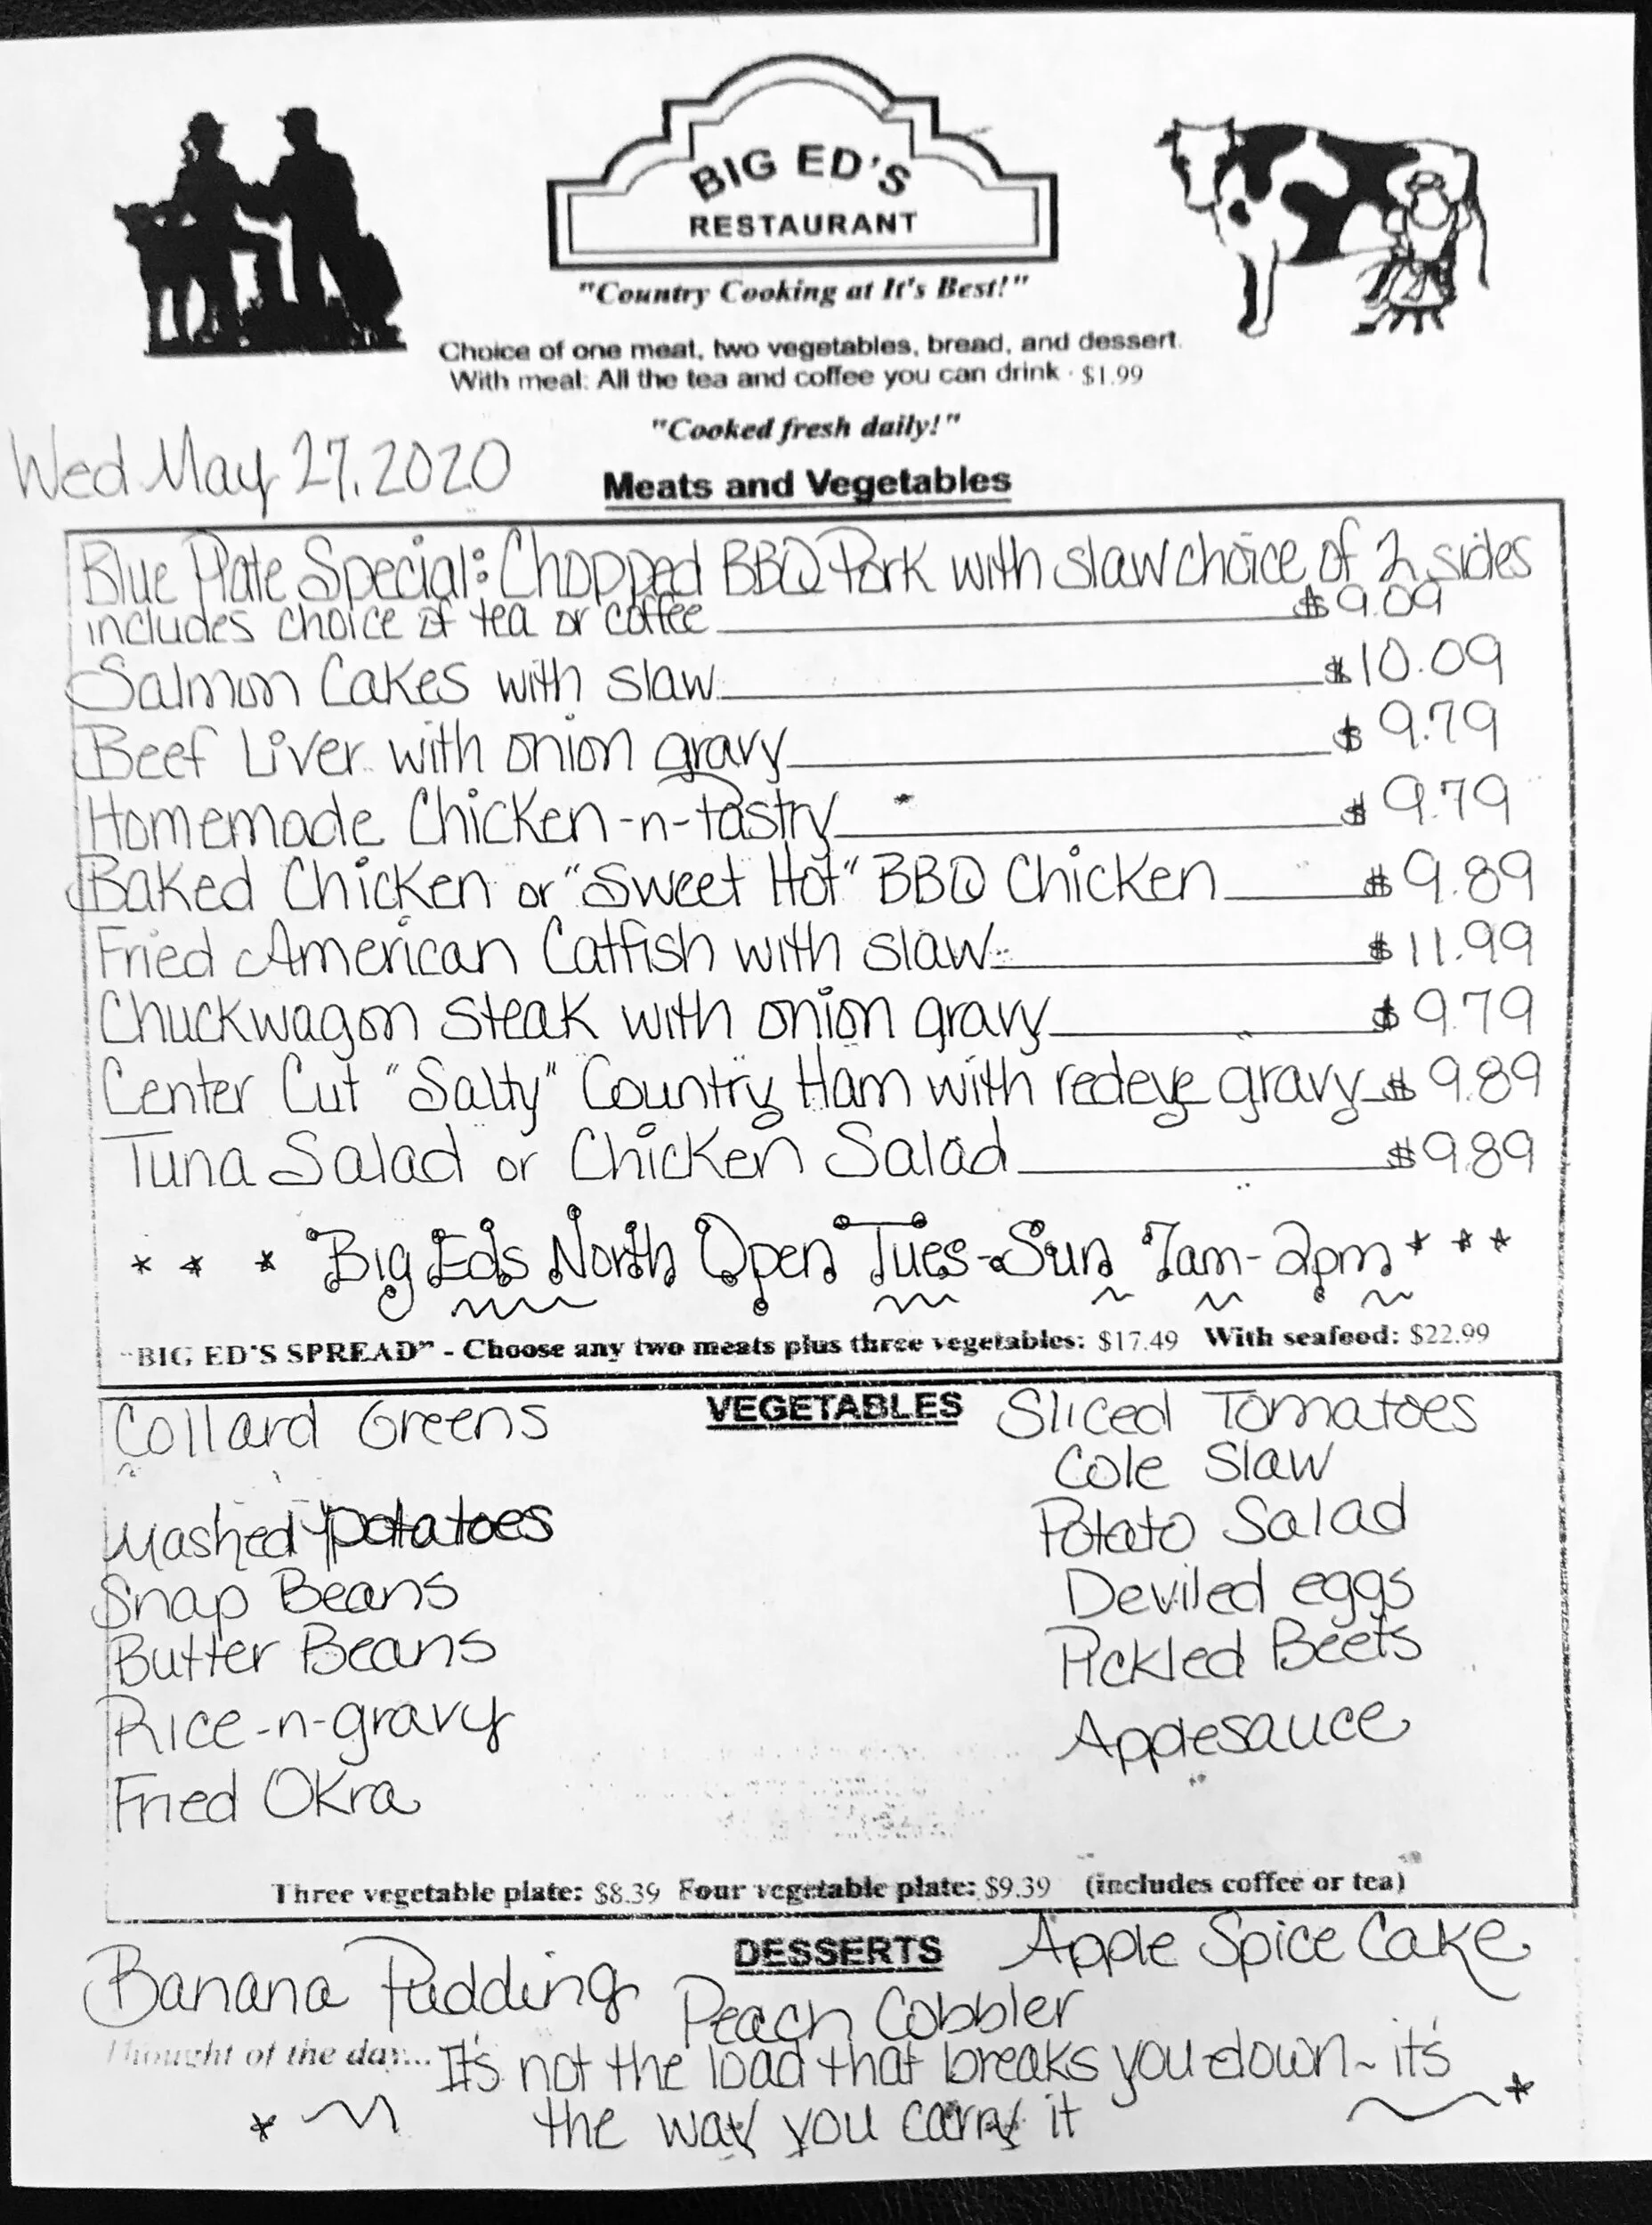 BIG ED'S
RESTAURANT
"Country Cooking at It's Best!"
Choice of one meat, two vegetables, bread, and dessert.
With meal: All the tea and coffee you can drink · $1.99
"Cooked fresh daily!"
Wed May 27, 2020
Meats and Vegetables
Blue Plate Special: Chopped BBQ Pork with slaw choice of 2 sides
includes choice of tea or coffee $9.09
Salmon Cakes with slaw $10.09
Beef Liver with onion gravy $9.79
Homemade Chicken-n-Pastry $9.79
Baked Chicken or "Sweet Hot" BBQ Chicken $9.89
Fried American Catfish with slaw $11.99
Chuckwagon Steak with onion gravy $9.79
Center Cut "Salty" Country Ham with redeye gravy $9.89
Tuna Salad or Chicken Salad $9.89
* * * Big Eds North Open Tues-Sun 7am-2pm * * *
"BIG ED'S SPREAD" - Choose any two meats plus three vegetables: $17.49 With seafood: $22.99
VEGETABLES
Collard Greens
Mashed potatoes
Snap Beans
Butter Beans
Rice-n-gravy
Fried Okra
Sliced Tomatoes
Cole Slaw
Potato Salad
Deviled eggs
Pickled Beets
Applesauce
Three vegetable plate: $8.39 Four vegetable plate: $9.39 (includes coffee or tea)
DESSERTS
Banana Pudding
Peach Cobbler
Apple Spice Cake
Thought of the day... It's not the load that breaks you down ~ it's
the way you carry it